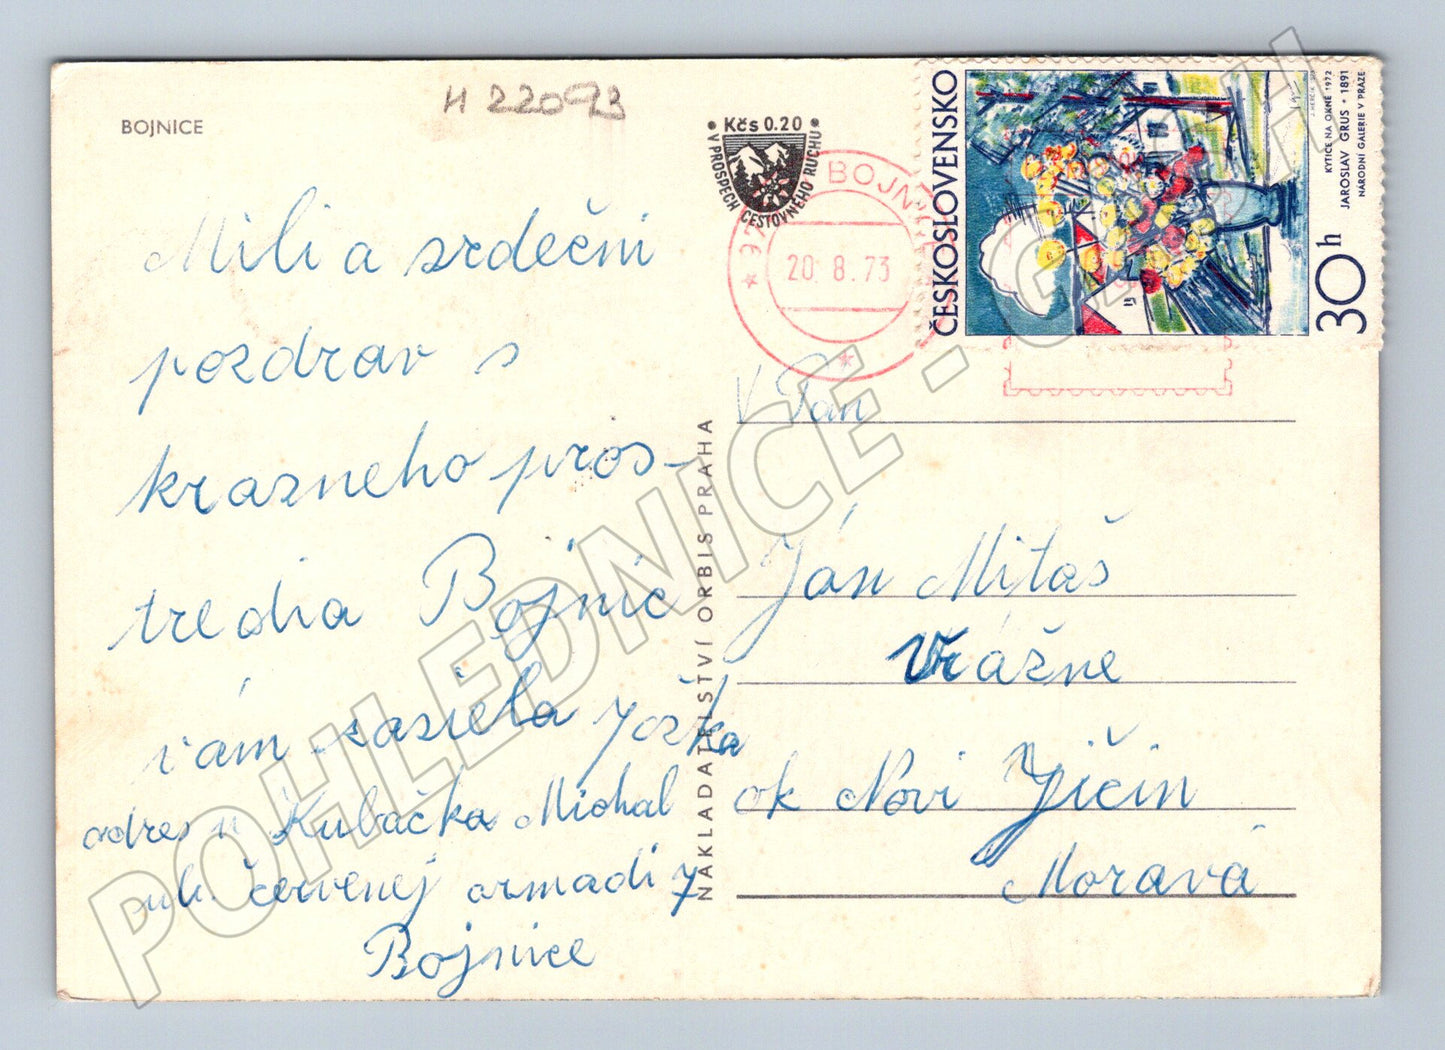 H 22093
BOJNICE
Kčs 0.20
V PROSPECH CESTOVNÉHO RUCHU
BOJN
20. 8. 73
ČESKOSLOVENSKO
30h
J. HERČÍK
KYTICE NA OKNĚ 1972
JAROSLAV GRUS * 1891
NÁRODNÍ GALERIE V PRAZE
Mili a srdečni
pozdrav s
krazneho pros-
tredia Bojnic
vám zasiela Jožka
adres u Kubačka Michal
ul. červenej armadi 7
Bojnice
NAKLADATELSTVÍ ORBIS PRAHA
V. Pán
Ján Mitaš
Vrážne
ok Novi Jičin
Morava
POHLEDNICE -